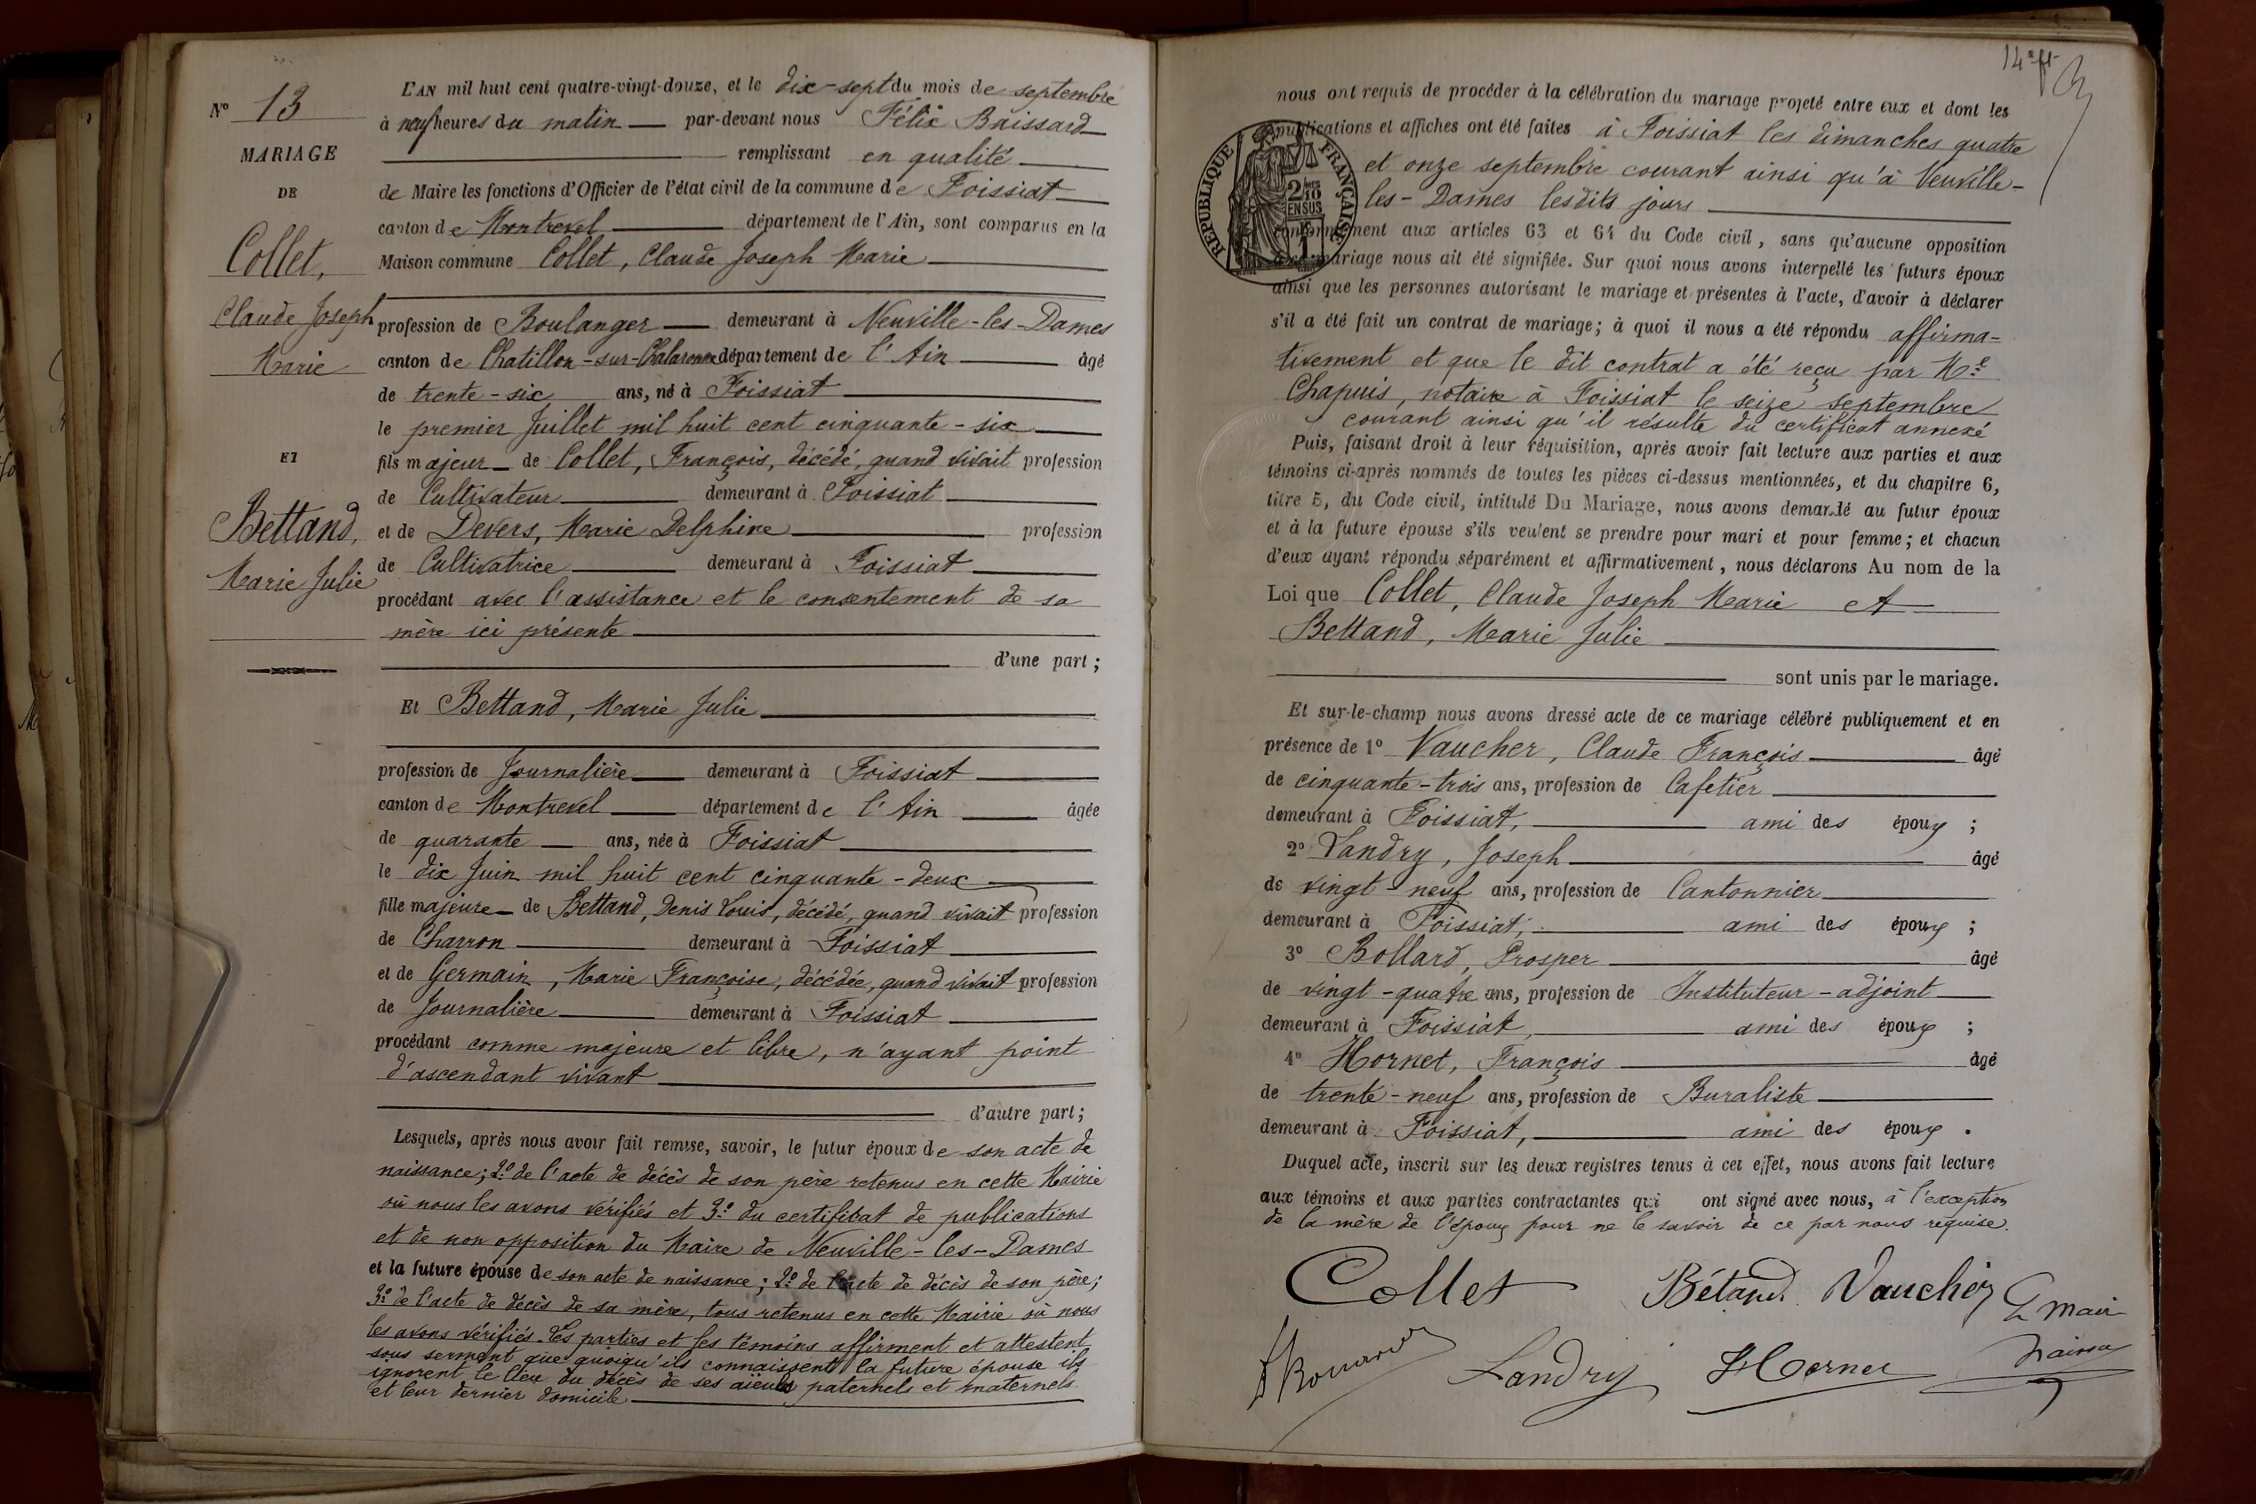 N° 13
MARIAGE
DE
Collet,
Claude Joseph
Marie
ET
Bettand,
Marie Julie
L'AN mil huit cent quatre-vingt-douze, et le dix-sept du mois de septembre
à neuf heures du matin par-devant nous Félix Brissard
remplissant en qualité
de Maire les fonctions d'Officier de l'état civil de la commune de Foissiat
canton de Montrevel département de l'Ain, sont comparus en la
Maison commune Collet, Claude Joseph Marie
profession de Boulanger demeurant à Neuville-les-Dames
canton de Chatillon-sur-Chalaronne département de l'Ain âgé
de trente-six ans, né à Foissiat
le premier Juillet mil huit cent cinquante-six
fils majeur de Collet, François, décédé, quand vivait profession
de Cultivateur demeurant à Foissiat
et de Devers, Marie Delphine profession
de Cultivatrice demeurant à Foissiat
procédant avec l'assistance et le consentement de sa
mère ici présente
d'une part;
Et Bettand, Marie Julie
profession de Journalière demeurant à Foissiat
canton de Montrevel département de l'Ain âgée
de quarante ans, née à Foissiat
le dix Juin mil huit cent cinquante-deux
fille majeure de Bettand, Denis Louis, décédé, quand vivait profession
de Charron demeurant à Foissiat
et de Germain, Marie Françoise, décédée, quand vivait profession
de Journalière demeurant à Foissiat
procédant comme majeure et libre, n'ayant point
d'ascendant vivant
d'autre part;
Lesquels, après nous avoir fait remise, savoir, le futur époux de son acte de
naissance; 2° de l'acte de décès de son père retenus en cette Mairie
où nous les avons vérifiés et 3° du certificat de publications
et de non opposition du Maire de Neuville-les-Dames
et la future épouse de son acte de naissance; 2° de l'acte de décès de son père;
3° de l'acte de décès de sa mère, tous retenus en cette Mairie où nous
les avons vérifiés. Les parties et les témoins affirment et attestent
sous serment que quoiqu'ils connaissent la future épouse ils
ignorent le lieu du décès de ses aïeuls paternels et maternels
et leur dernier domicile
14e ft
nous ont requis de procéder à la célébration du mariage projeté entre eux et dont les
publications et affiches ont été faites à Foissiat les dimanches quatre
et onze septembre courant ainsi qu'à Neuville-
les-Dames lesdits jours
RÉPUBLIQUE FRANÇAISE
2/10 EN SUS
conformément aux articles 63 et 64 du Code civil, sans qu'aucune opposition
à ce mariage nous ait été signifiée. Sur quoi nous avons interpellé les futurs époux
ainsi que les personnes autorisant le mariage et présentes à l'acte, d'avoir à déclarer
s'il a été fait un contrat de mariage; à quoi il nous a été répondu affirma-
tivement et que le dit contrat a été reçu par Me
Chapuis, notaire à Foissiat le seize septembre
courant ainsi qu'il résulte du certificat annexé
Puis, faisant droit à leur réquisition, après avoir fait lecture aux parties et aux
témoins ci-après nommés de toutes les pièces ci-dessus mentionnées, et du chapitre 6,
titre 5, du Code civil, intitulé Du Mariage, nous avons demandé au futur époux
et à la future épouse s'ils veulent se prendre pour mari et pour femme; et chacun
d'eux ayant répondu séparément et affirmativement, nous déclarons Au nom de la
Loi que Collet, Claude Joseph Marie et
Bettand, Marie Julie
sont unis par le mariage.
Et sur-le-champ nous avons dressé acte de ce mariage célébré publiquement et en
présence de 1° Vaucher, Claude François âgé
de cinquante-trois ans, profession de Cafetier
demeurant à Foissiat, ami des époux;
2° Landry, Joseph âgé
de vingt-neuf ans, profession de Cantonnier
demeurant à Foissiat, ami des époux;
3° Bollard, Prosper âgé
de vingt-quatre ans, profession de Instituteur-adjoint
demeurant à Foissiat, ami des époux;
4° Hornet, François âgé
de trente-neuf ans, profession de Buraliste
demeurant à Foissiat, ami des époux.
Duquel acte, inscrit sur les deux registres tenus à cet effet, nous avons fait lecture
aux témoins et aux parties contractantes qui ont signé avec nous, à l'exception
de la mère de l'époux pour ne le savoir de ce par nous requise.
Collet Bétand Vaucher Le Maire
Landry Hornet